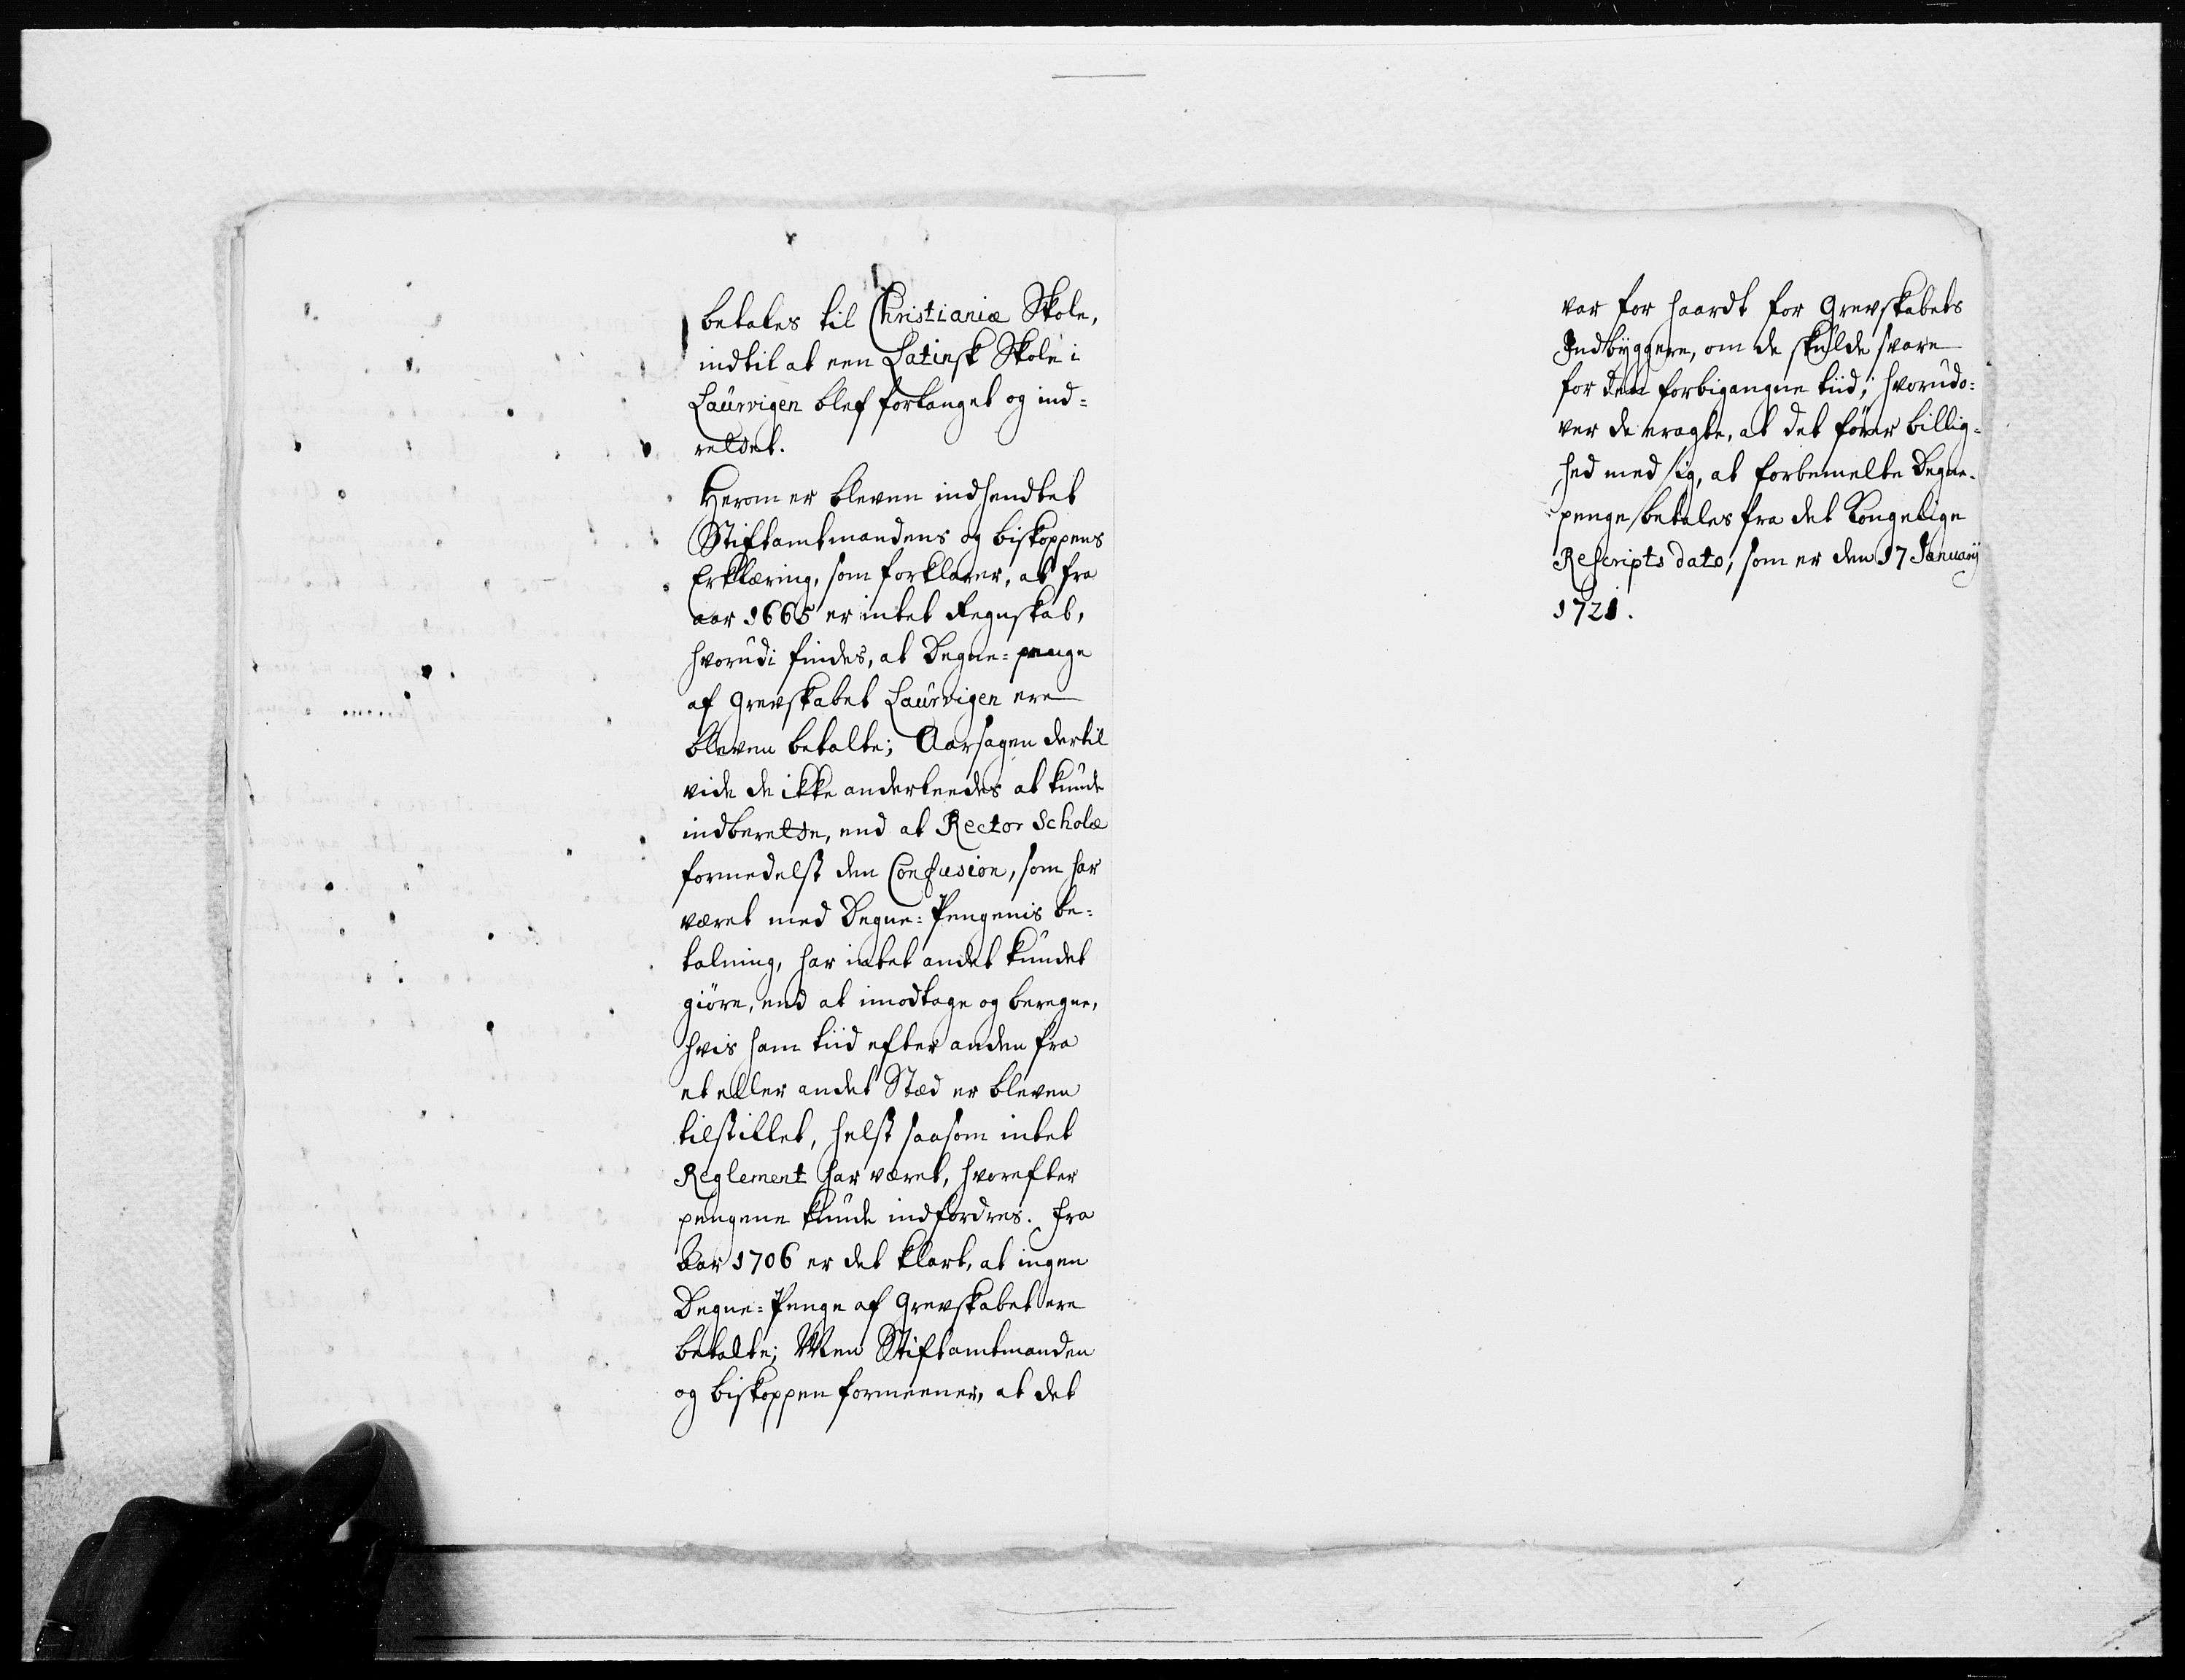 betales til Christianiæ Skole,
indtil at een Latinsk Skole i
Laurvigen blef forlanget og ind-
rettet.
Herom er bleven indhendtet
Stiftamtmandens og biskoppens
Erklæring, som forklarer, at fra
aar 1665 er intet Regnskab,
hvorudi findes, at Degne-penge
af Grevskabet Laurvigen ere
bleven betalte; Aarsagen dertil
vide de ikke anderleedes at kunde
indberette, end at Rector Scholæ
formedelst den Confusion, som har
været med Degne-Pengenis be-
talning, har intet andet kundet
giöre, end at imodtage og beregne,
hvis ham tiid efter anden fra
et eller andet Stæd er bleven
tilstillet, helst saasom intet
Reglement har været, hvorefter
pengene kunde indfordres. Fra
Aar 1706 er det klart, at ingen
Degne-Penge af Grevskabet ere
betalte; Men Stiftamtmanden
og biskoppen formeener, at det
var for haardt for Grevskabets
Indbyggere, om de skulde svare
for den forbigangne tiid; hvorudo-
ver de eragte, at det förer billig-
hed med sig, at forbemelte Degne-
penge betales fra det Kongelige
Rescripts dato, som er den 17 January
1721.